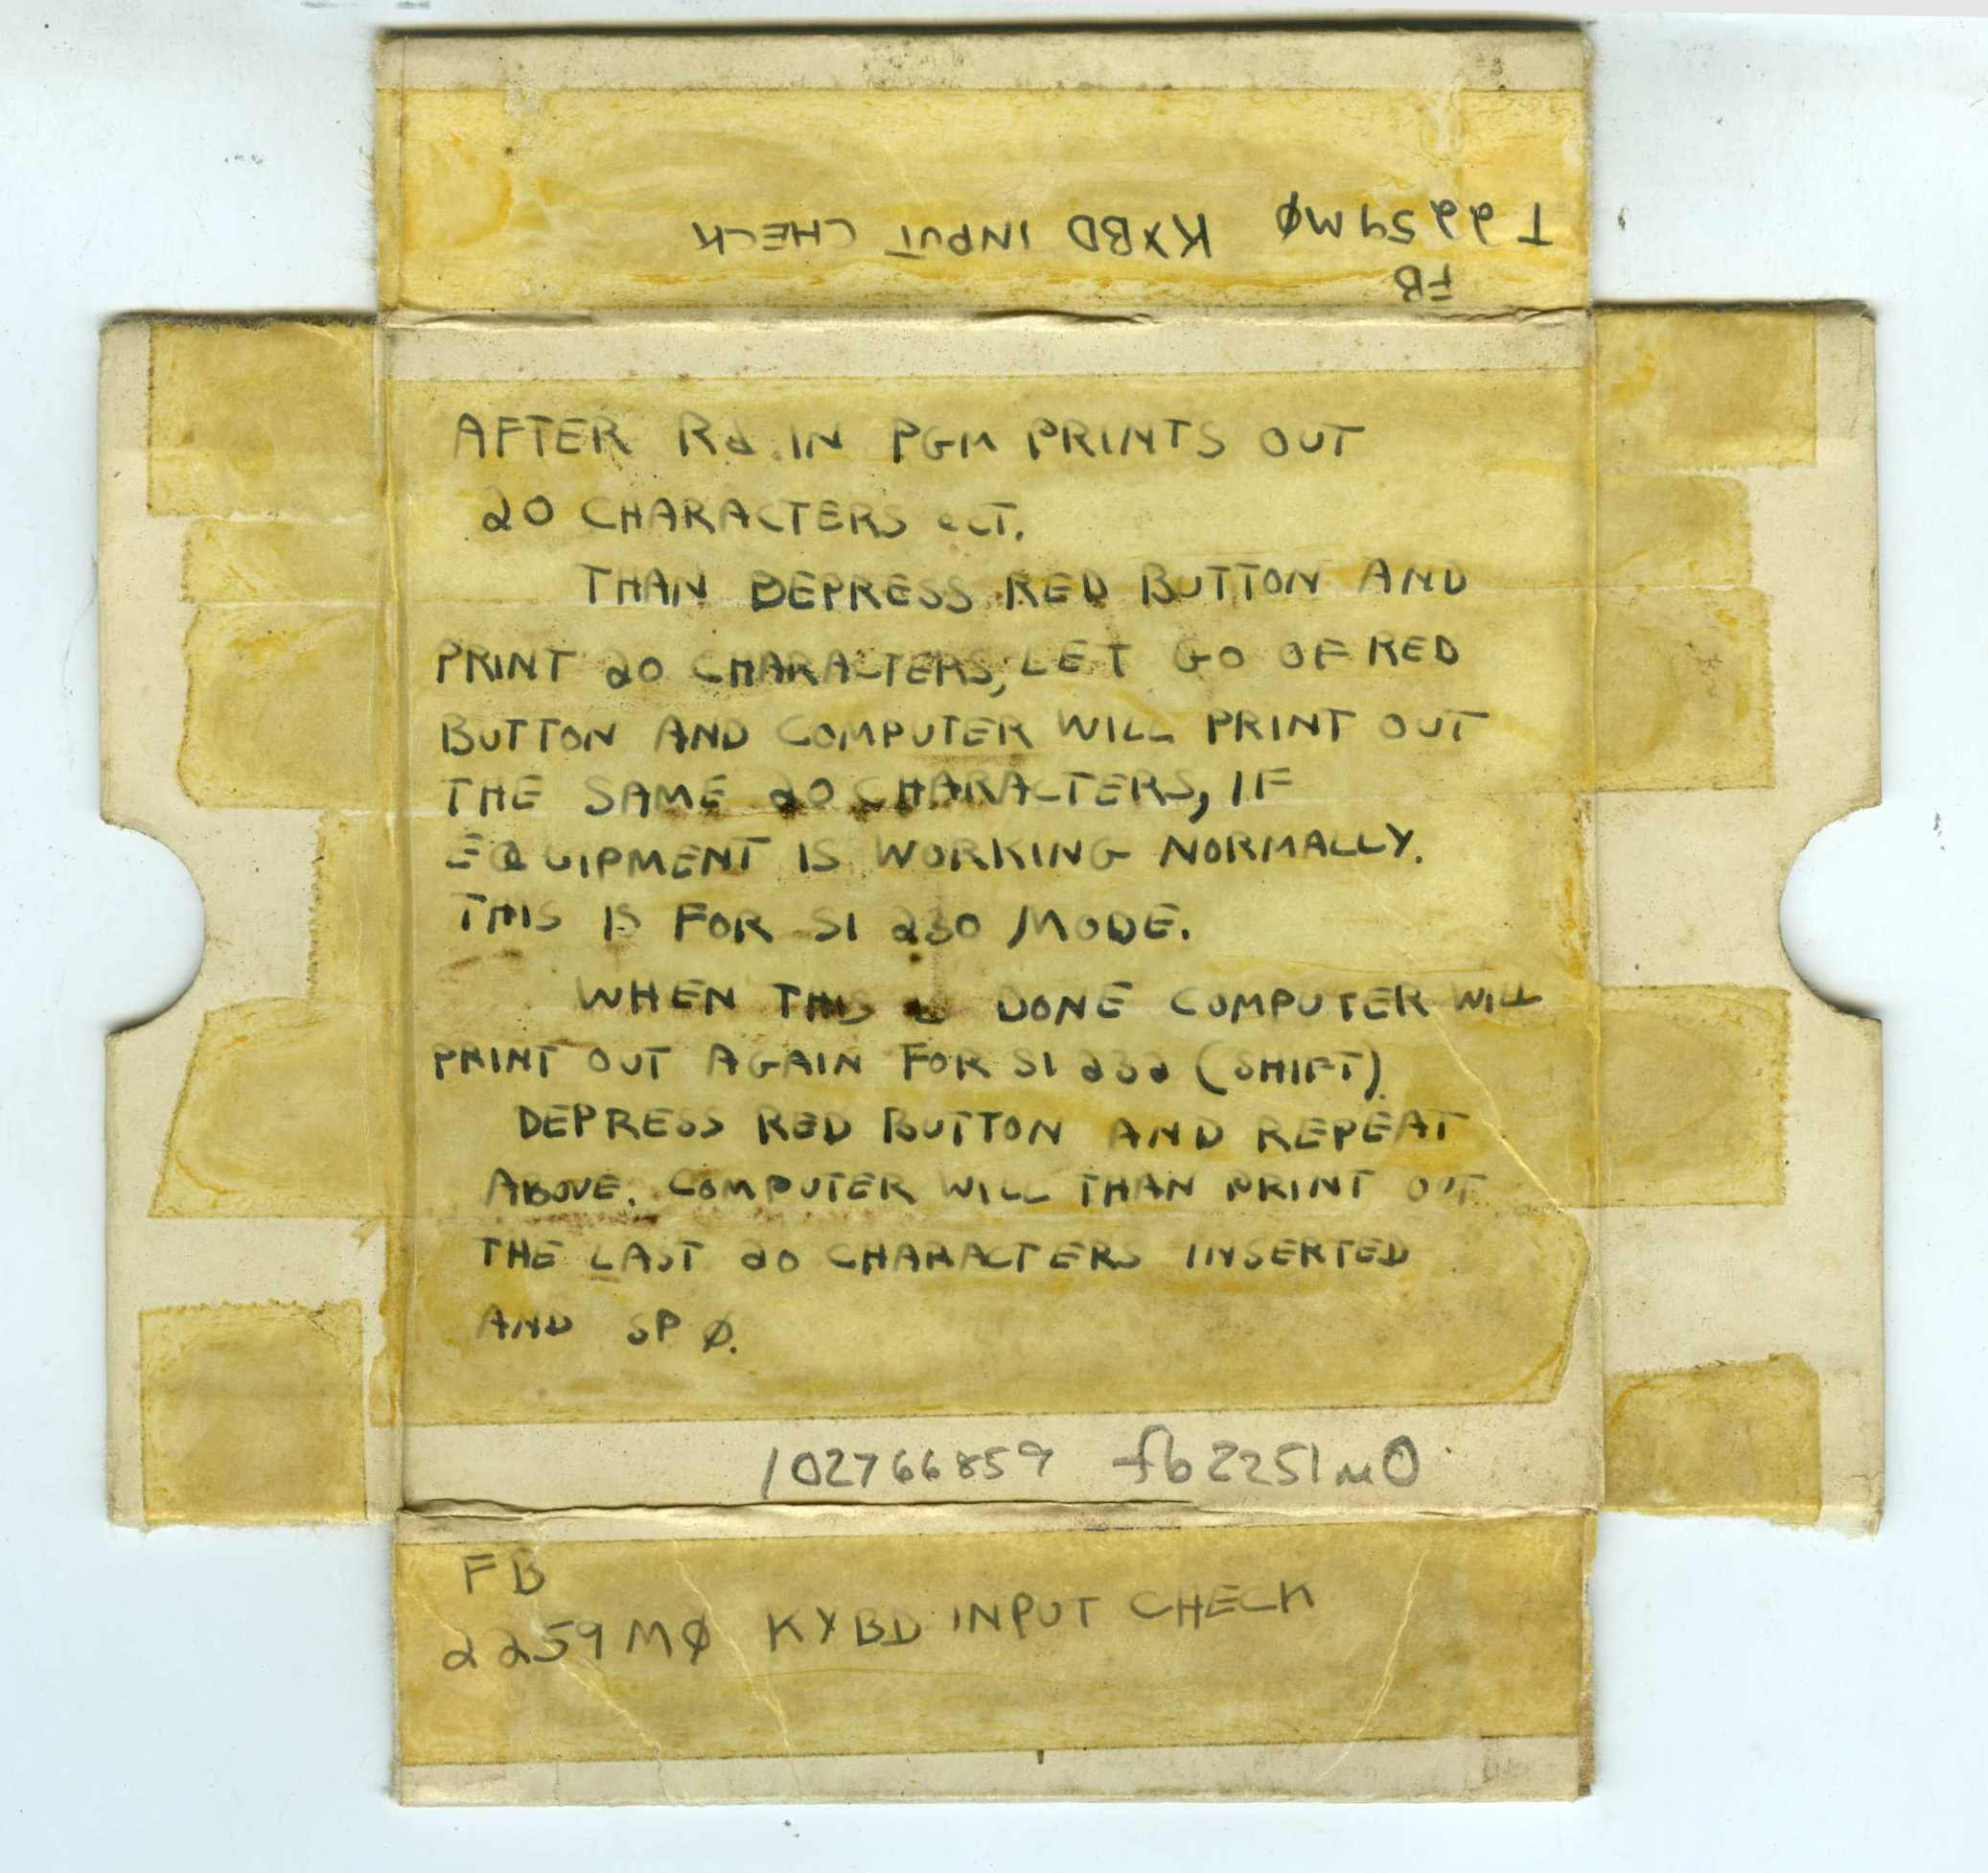 T2259MØ KYBD INPUT CHECK
FB
AFTER Rd. IN PGM PRINTS OUT
20 CHARACTERS ect.
THAN DEPRESS RED BUTTON AND
PRINT 20 CHARACTERS, LET GO OF RED
BUTTON AND COMPUTER WILL PRINT OUT
THE SAME 20 CHARACTERS, IF
EQUIPMENT IS WORKING NORMALLY.
THIS IS FOR SI 230 MODE.
WHEN THIS IS DONE COMPUTER WILL
PRINT OUT AGAIN FOR SI 232 (SHIFT).
DEPRESS RED BUTTON AND REPEAT
ABOVE. COMPUTER WILL THAN PRINT OUT
THE LAST 20 CHARACTERS INSERTED
AND SP Ø.
102766859 fb2251m0
FB
2259MØ KYBD INPUT CHECK